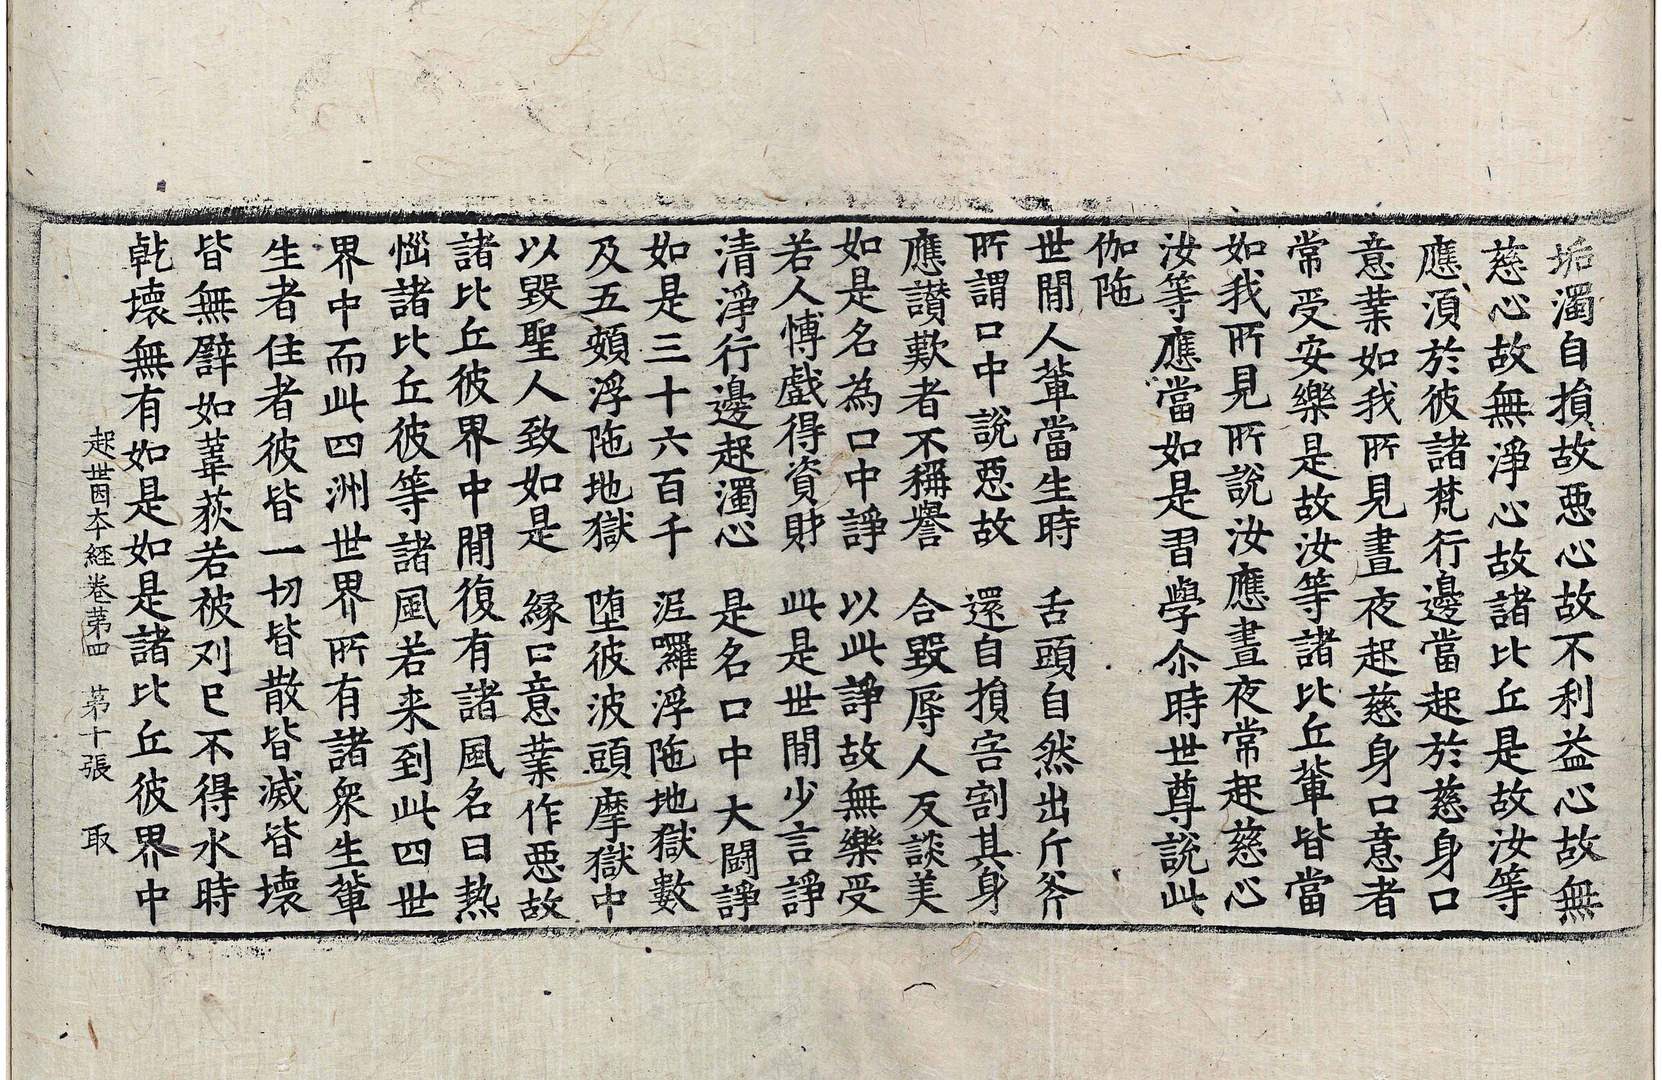 垢濁自損故惡心故不利益心故無
慈心故無淨心故諸比丘是故汝等
應湏於彼諸梵行邊當起於慈身口
意業如我所見晝夜起慈身口意者
常受安樂是故汝等諸比丘輩皆當
如我所見所說汝應晝夜常起慈心
汝等應當如是習學尒時世尊說此
伽陁
世間人輩當生時　舌頭自然出斤斧
所謂口中說惡故　還自損害割其身
應讃歎者不稱譽　合毀辱人反談美
如是名為口中諍　以此諍故無樂受
若人愽戲得資財　此是世間少言諍
清淨行邊起濁心　是名口中大鬪諍
如是三十六百千　泥羅浮陁地獄數
及五頞浮陁地獄　墮彼波頭摩獄中
以毀聖人致如是　緣口意業作惡故
諸比丘彼界中間復有諸風名曰熱
惱諸比丘彼等諸風若来到此四世
界中而此四洲世界所有諸衆生輩
生者住者彼皆一切皆散皆滅皆壞
皆無譬如葦荻若被刈已不得水時
乹壞無有如是如是諸比丘彼界中
起世因本経卷第四　第十張　取